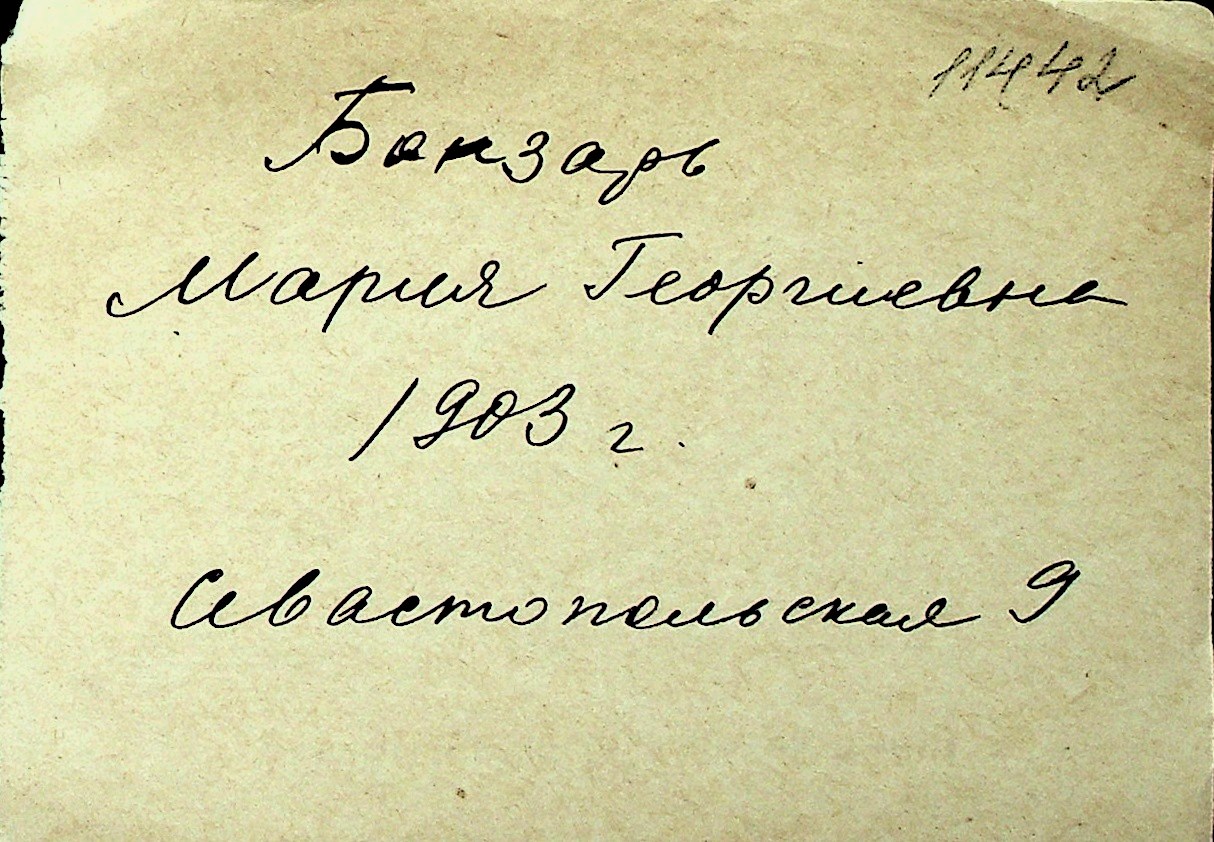 11442
Банзарь
Мария Георгиевна
1903 г.
Севастопольская 9